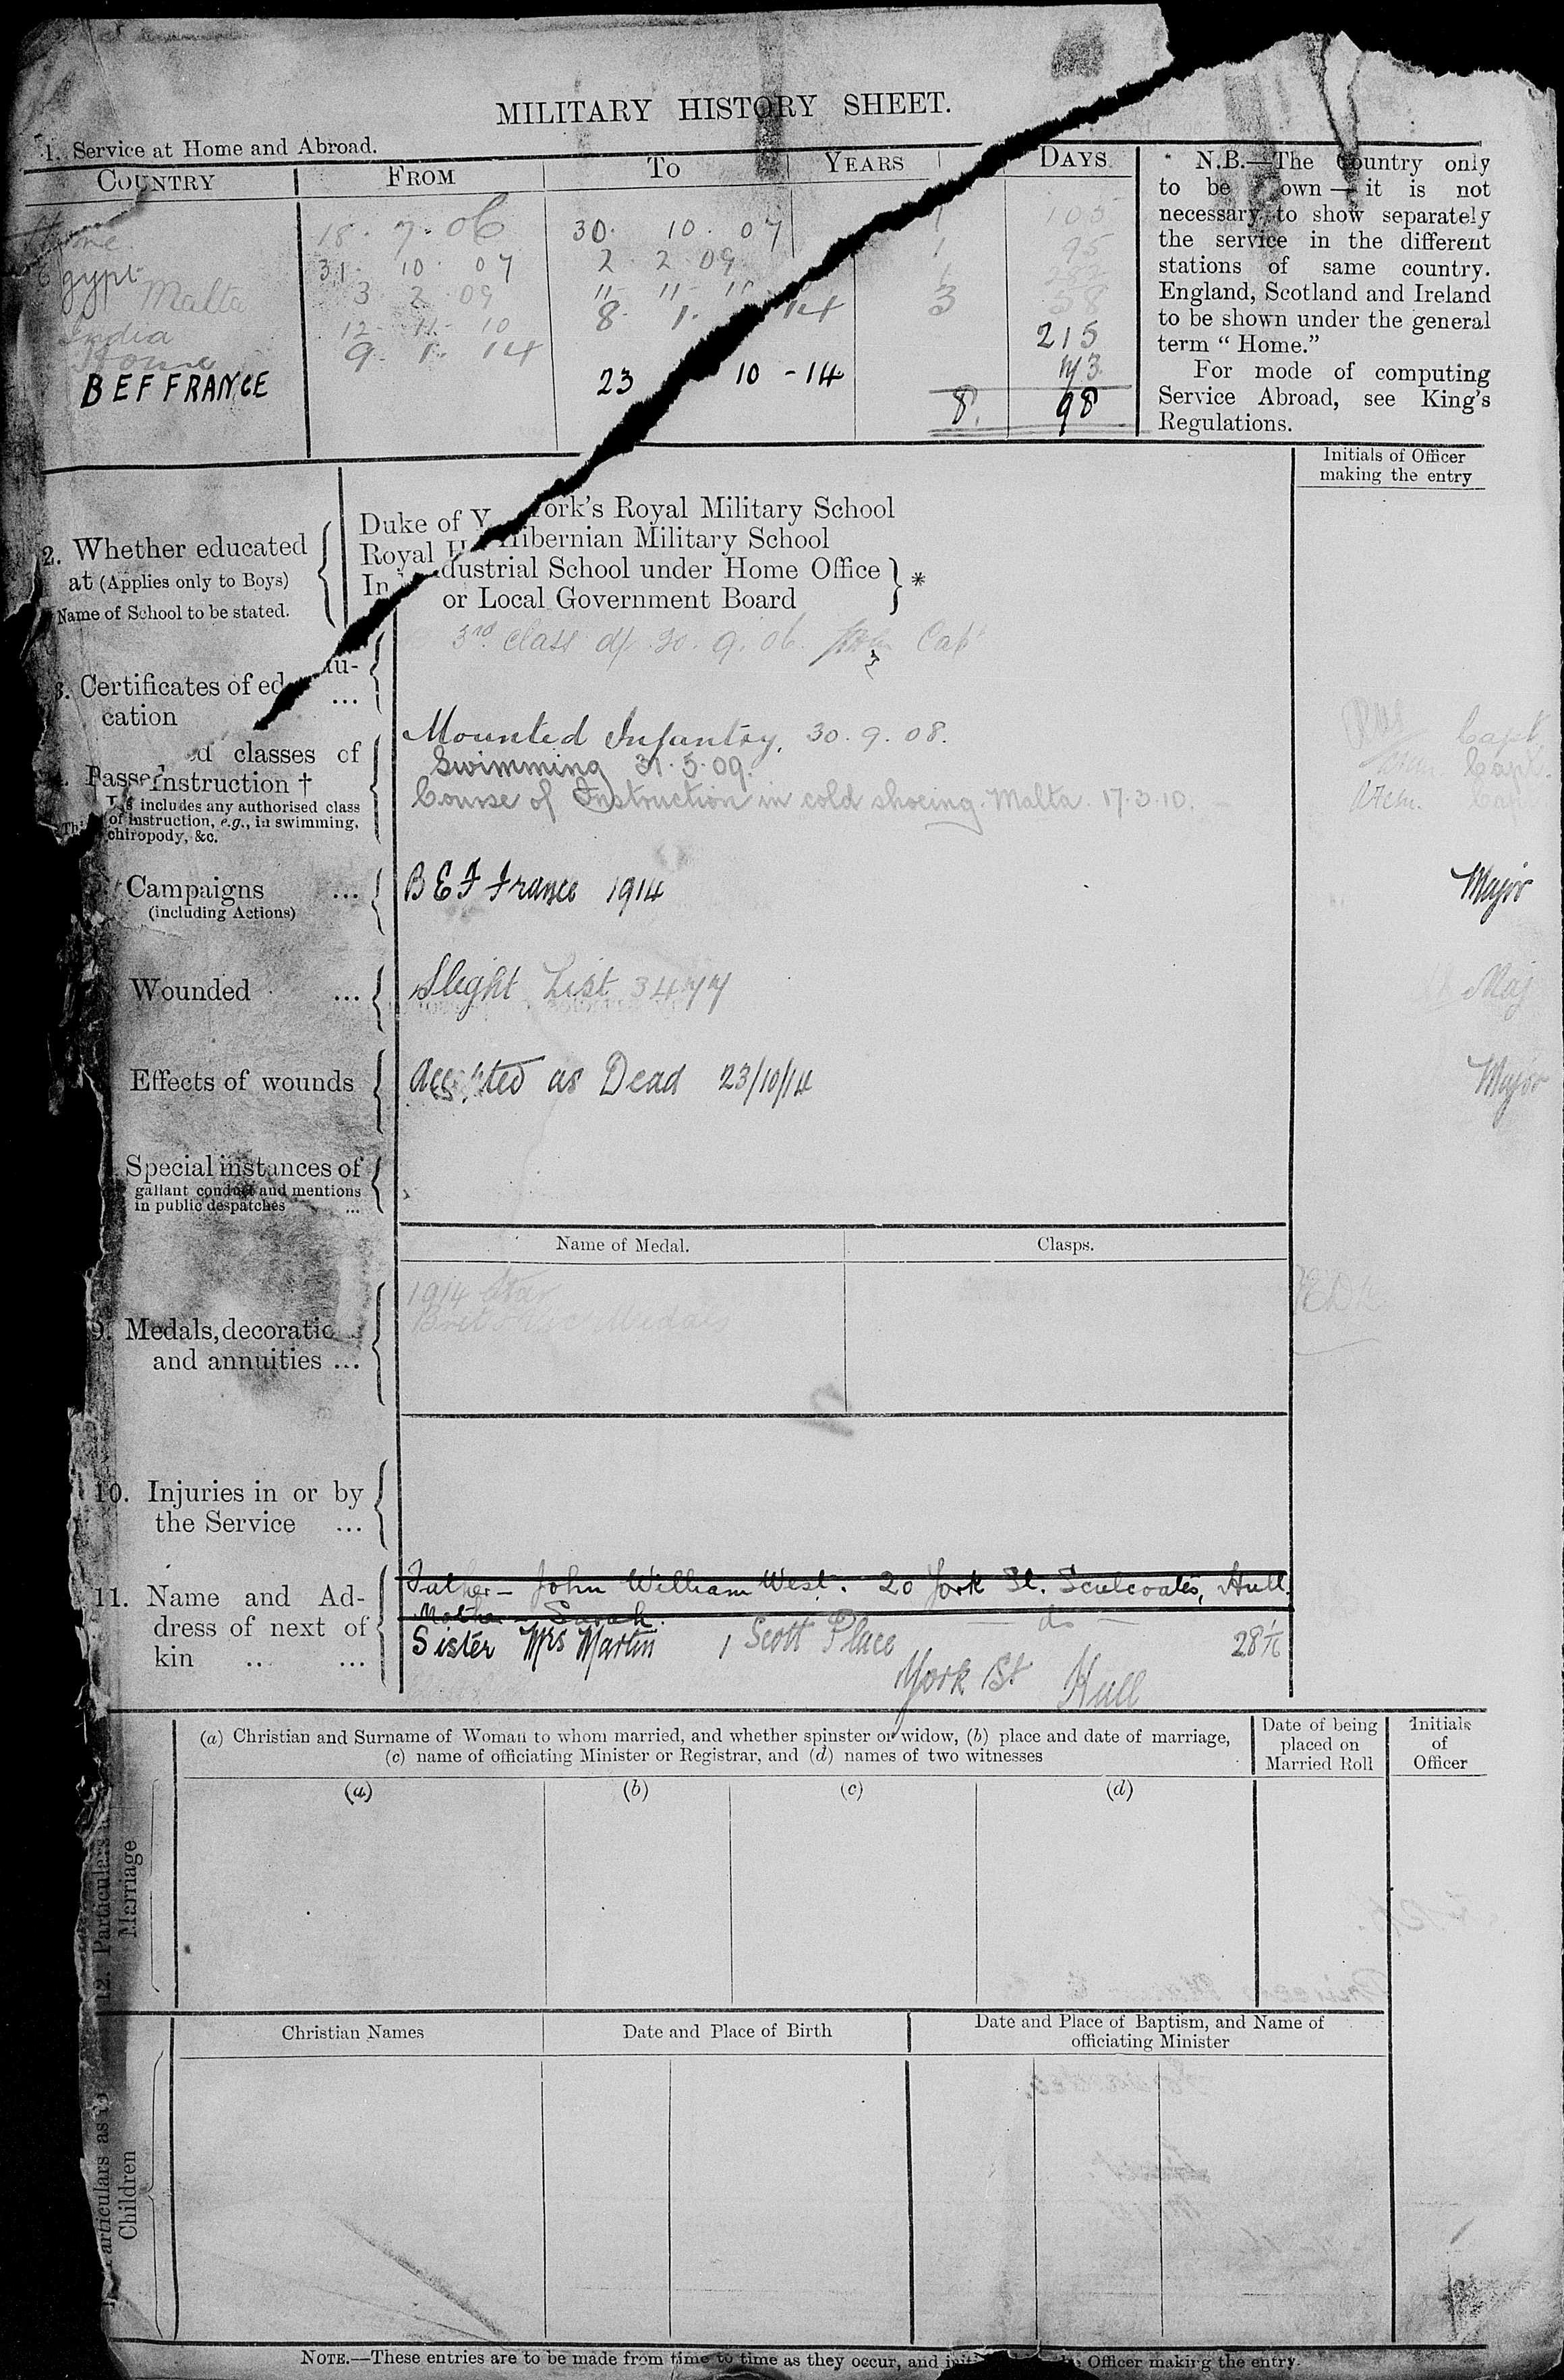 MILITARY HISTORY SHEET.
1. Service at Home and Abroad.
COUNTRY FROM TO YEARS DAYS
Home 18. 7. 06 30. 10. 07 1 105
Egypt 31. 10. 07 2. 2. 09 1 95
Malta 3. 2. 09 11. 11. 1 282
India 12. 11. 10 8. 1. 14 3 58
Home 9. 1. 14 215
B E F FRANCE 23 10 - 14
8. 98
N.B.—The Country only
to be own — it is not
necessary to show separately
the service in the different
stations of same country.
England, Scotland and Ireland
to be shown under the general
term “ Home.”
For mode of computing
Service Abroad, see King's
Regulations.
Initials of Officer
making the entry
2. Whether educated
at (Applies only to Boys)
Name of School to be stated.
Duke of Y York's Royal Military School
Royal H Hibernian Military School
In dustrial School under Home Office
or Local Government Board } *
3. Certificates of edu-
cation ...
3rd class d/ 30. 9. 06. Capt
Passed classes of
Instruction †
This includes any authorised class
of instruction, e.g., in swimming,
chiropody, &c.
Mounted Infantry, 30. 9. 08. Capt.
Swimming 31. 5. 09. Capt.
Course of Instruction in cold shoeing. Malta. 17. 3. 10. Capt
Campaigns ...
(including Actions)
B E F France 1914 Major
Wounded ...
Slight List 3477 Maj
Effects of wounds
Accepted as Dead 23/10/14 Major
Special instances of
gallant conduct and mentions
in public despatches ...
Name of Medal. Clasps.
9. Medals, decoratio
and annuities ...
1914 Star
Brit Medal
10. Injuries in or by
the Service ...
11. Name and Ad-
dress of next of
kin ... ...
Father — John William West. 20 York St. Sculcoates, Hull.
Mother — Sarah. — do —
Sister Mrs Martin 1 Scott Place
York St Hull
(a) Christian and Surname of Woman to whom married, and whether spinster or widow, (b) place and date of marriage,
(c) name of officiating Minister or Registrar, and (d) names of two witnesses
Date of being
placed on
Married Roll
Initials
of
Officer
(a) (b) (c) (d)
12. Particulars
Marriage
Christian Names Date and Place of Birth
Date and Place of Baptism, and Name of
officiating Minister
articulars as to
Children
NOTE.—These entries are to be made from time to time as they occur, and Officer making the entry.